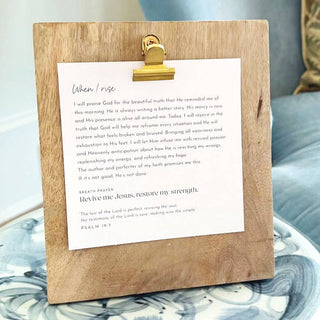 When I rise
I will praise God for the beautiful truth that He reminded me of
this morning. He is always writing a better story. His mercy is new
and His presence is alive all around me. Today, I will rejoice in the
truth that God will help me reframe every situation and He will
restore what feels broken and bruised. Bringing all weariness and
exhaustion to His feet, I will let Him infuse me with revived passion
and Heavenly anticipation about how He is rewiring my energy,
replenishing my energy, and refreshing my hope.
The author and perfecter of my faith promises me this:
If it's not good, He's not done.
BREATH PRAYER
Revive me Jesus, restore my strength.
The law of the Lord is perfect, reviving the soul;
the testimony of the Lord is sure, making wise the simple.
PSALM 19:7